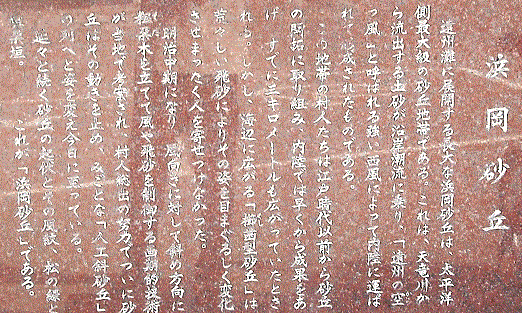 浜岡砂丘
遠州灘に展開する最大な浜岡砂丘は、太平洋
側最大級の砂丘地帯である。これは、天竜川か
ら流出する土砂が沿岸潮流に乗り、「遠州の空
っ風」と呼ばれる強い西風によって内陸に運ば
れて形成されたものである。
地帯の村人たちは江戸時代以前から砂丘
の開拓に取り組み、内陸では早くから成果をあ
げ、すでに三キロメートルも広がっていたとさ
れる。しかし、海辺に広がる「櫛型砂丘」は
荒々しい飛砂によりその姿を目まぐるしく変化
させまったく人を寄せつけなかった。
明治中期になり、風向きに対して斜め方向に
粗朶木を立てて風や飛砂を制御する画期的技術
が当地で考案され、村人総出の努力でついに砂
丘はその動きを止め、みごとな「人工斜砂丘」
の列へと姿を変え今日に至っている。
延々と続く砂丘の起伏とその風紋、松の緑と
粗朶垣。これが「浜岡砂丘」である。